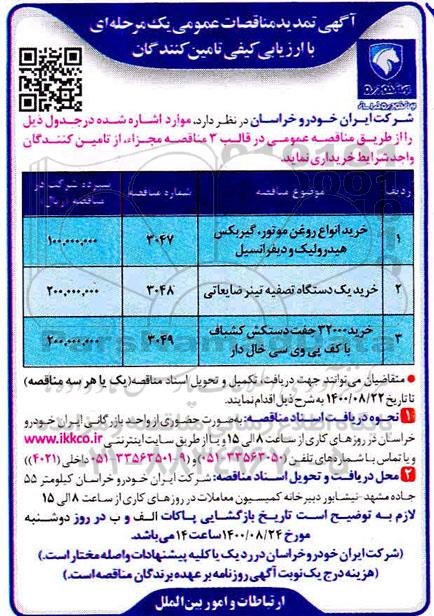 آگهی تمدید مناقصات عمومی یک مرحله‌ای
با ارزیابی کیفی تامین کنندگان
شرکت ایران خودرو خراسان در نظر دارد، موارد اشاره شده در جدول ذیل
را از طریق مناقصه عمومی در قالب ۳ مناقصه مجزاء، از تامین کنندگان
واجد شرایط خریداری نماید.
ردیف موضوع مناقصه شماره مناقصه سپرده شرکت در مناقصه (ریال)
۱ خرید انواع روغن موتور، گیربکس هیدرولیک و دیفرانسیل ۳۰۴۷ ۱۰۰,۰۰۰,۰۰۰
۲ خرید یک دستگاه تصفیه تینر ضایعاتی ۳۰۴۸ ۲۰۰,۰۰۰,۰۰۰
۳ خرید ۳۲۰۰۰ جفت دستکش کشباف با کف پی وی سی خال دار ۳۰۴۹ ۲۰۰,۰۰۰,۰۰۰
● متقاضیان می‌توانند جهت دریافت، تکمیل و تحویل اسناد مناقصه (یک یا هر سه مناقصه)
تا تاریخ ۱۴۰۰/۰۸/۲۲ به شرح ذیل اقدام نمایند.
۱ نحوه دریافت اسناد مناقصه: به‌صورت حضوری از واحد بازرگانی ایران خودرو
خراسان در روزهای کاری از ساعت ۸ الی ۱۵ و یا از طریق سایت اینترنتی www.ikkco.ir
و یا تماس با شماره‌های تلفن (۰۵۱-۳۳۵۶۳۰۵۰) و (۰۵۱-۳۳۵۶۳۵۰۱-۹ داخلی (۴۰۲۱))
۲ محل دریافت و تحویل اسناد مناقصه: شرکت ایران خودرو خراسان کیلومتر ۵۵
جاده مشهد-نیشابور دبیرخانه کمیسیون معاملات در روزهای کاری از ساعت ۸ الی ۱۵
لازم به توضیح است تاریخ بازگشایی پاکات الف و ب در روز دوشنبه
مورخ ۱۴۰۰/۰۸/۲۴ ساعت ۱۴ می‌باشد.
(شرکت ایران خودرو خراسان در رد یک یا کلیه پیشنهادات واصله مختار است.)
(هزینه درج یک نوبت آگهی روزنامه بر عهده برندگان مناقصه است.)
ارتباطات و امور بین الملل